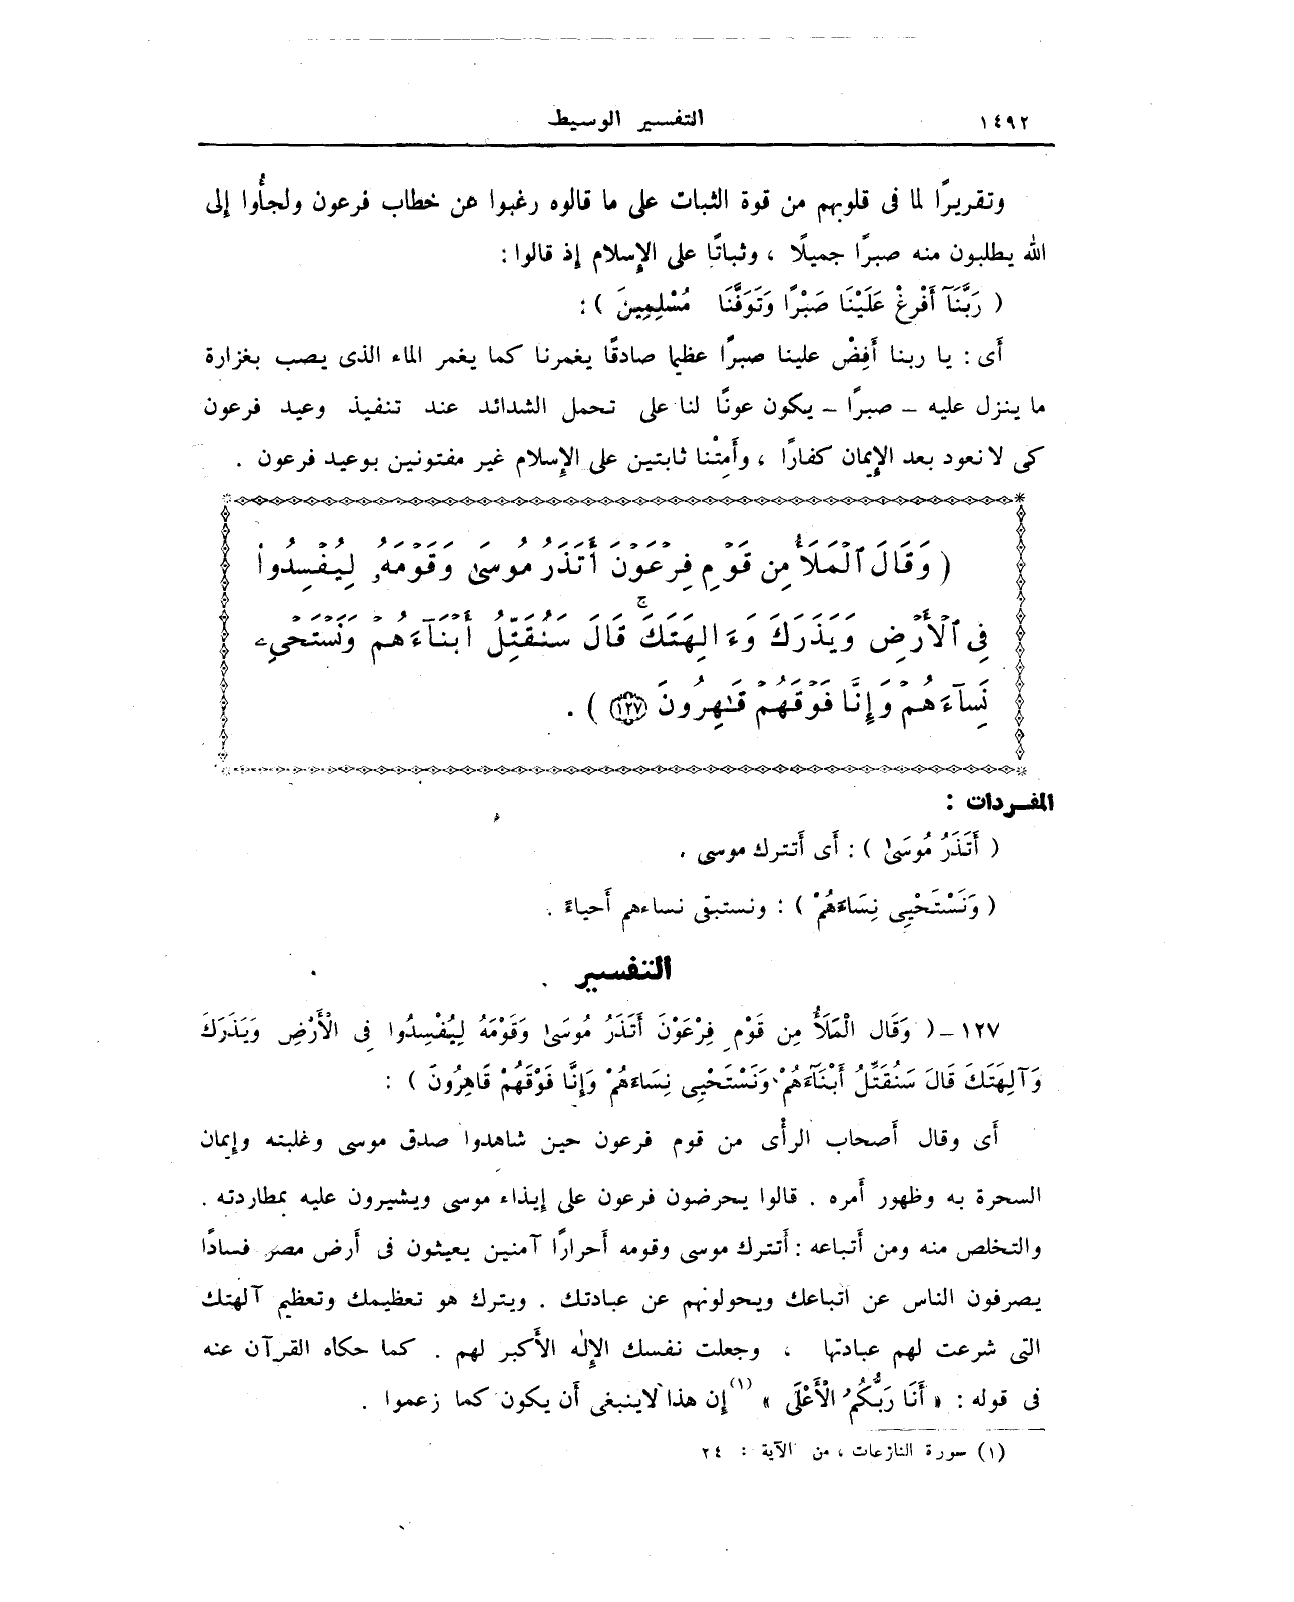 ١٤٩٢
التفسير الوسيط
وتقريرًا لما فى قلوبهم من قوة الثبات على ما قالوه رغبوا عن خطاب فرعون ولجأُوا إلى
الله يطلبون منه صبرًا جميلًا ، وثباتًا على الإسلام إذ قالوا :
( رَبَّنَآ أَفْرِغْ عَلَيْنَا صَبْرًا وَتَوَفَّنَا مُسْلِمِينَ ) :
أى : يا ربنا أَفِضْ علينا صبرًا عظيما صادقًا يغمرنا كما يغمر الماء الذى يصب بغزارة
ما ينزل عليه – صبرًا – يكون عونًا لنا على تحمل الشدائد عند تنفيذ وعيد فرعون
كى لا نعود بعد الإيمان كفارًا ، وأَمِتْنا ثابتين على الإسلام غير مفتونين بوعيد فرعون .
( وَقَالَ ٱلْمَلَأُ مِن قَوْمِ فِرْعَوْنَ أَتَذَرُ مُوسَىٰ وَقَوْمَهُۥ لِيُفْسِدُوا۟
فِى ٱلْأَرْضِ وَيَذَرَكَ وَءَالِهَتَكَ ۚ قَالَ سَنُقَتِّلُ أَبْنَآءَهُمْ وَنَسْتَحْىِۦ
نِسَآءَهُمْ وَإِنَّا فَوْقَهُمْ قَـٰهِرُونَ ١٢٧ ) .
المفردات :
( أَتَذَرُ مُوسَىٰ ) : أَى أَتترك موسى .
( وَنَسْتَحْيِى نِسَاءَهُمْ ) : ونستبقى نساءهم أَحياءً .
التفسير
١٢٧ – ( وَقَال الْمَلَأُ مِن قَوْمِ فِرْعَوْنَ أَتَذَرُ مُوسَىٰ وَقَوْمَهُ لِيُفْسِدُوا فِى الْأَرْضِ وَيَذَرَكَ
وَآلِهَتَكَ قَالَ سَنُقَتِّلُ أَبْنَآءَهُمْ وَنَسْتَحْيِى نِسَاءَهُمْ وَإِنَّا فَوْقَهُمْ قَاهِرُونَ ) :
أى وقال أَصحاب الرأْى من قوم فرعون حين شاهدوا صدق موسى وغلبته وإيمان
السحرة به وظهور أَمره . قالوا يحرضون فرعون على إيذاء موسى ويشيرون عليه بمطاردته .
والتخلص منه ومن أَتباعه : أَتترك موسى وقومه أَحرارًا آمنين يعيثون فى أَرض مصر فسادًا
يصرفون الناس عن اتباعك ويحولونهم عن عبادتك . ويترك هو تعظيمك وتعظيم آلهتك
التى شرعت لهم عبادتها ، وجعلت نفسك الإله الأَكبر لهم . كما حكاه القرآن عنه
فى قوله : « أَنَا رَبُّكُمُ الْأَعْلَى » (١) إن هذا لاينبغى أن يكون كما زعموا .
(١) سورة النازعات ، من الآية : ٢٤